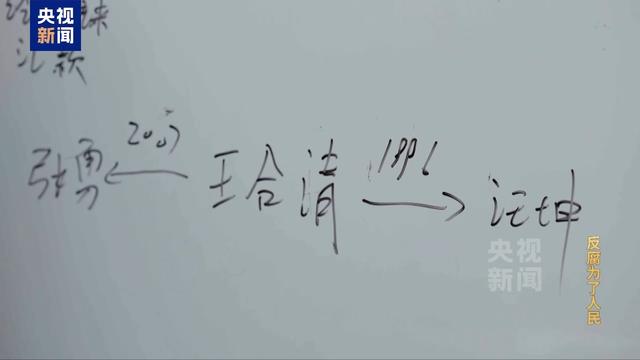 央视
新闻
汇款
张勇 ← 2007 王合清 1996 → 汪坤
央视
新闻
反腐为了人民